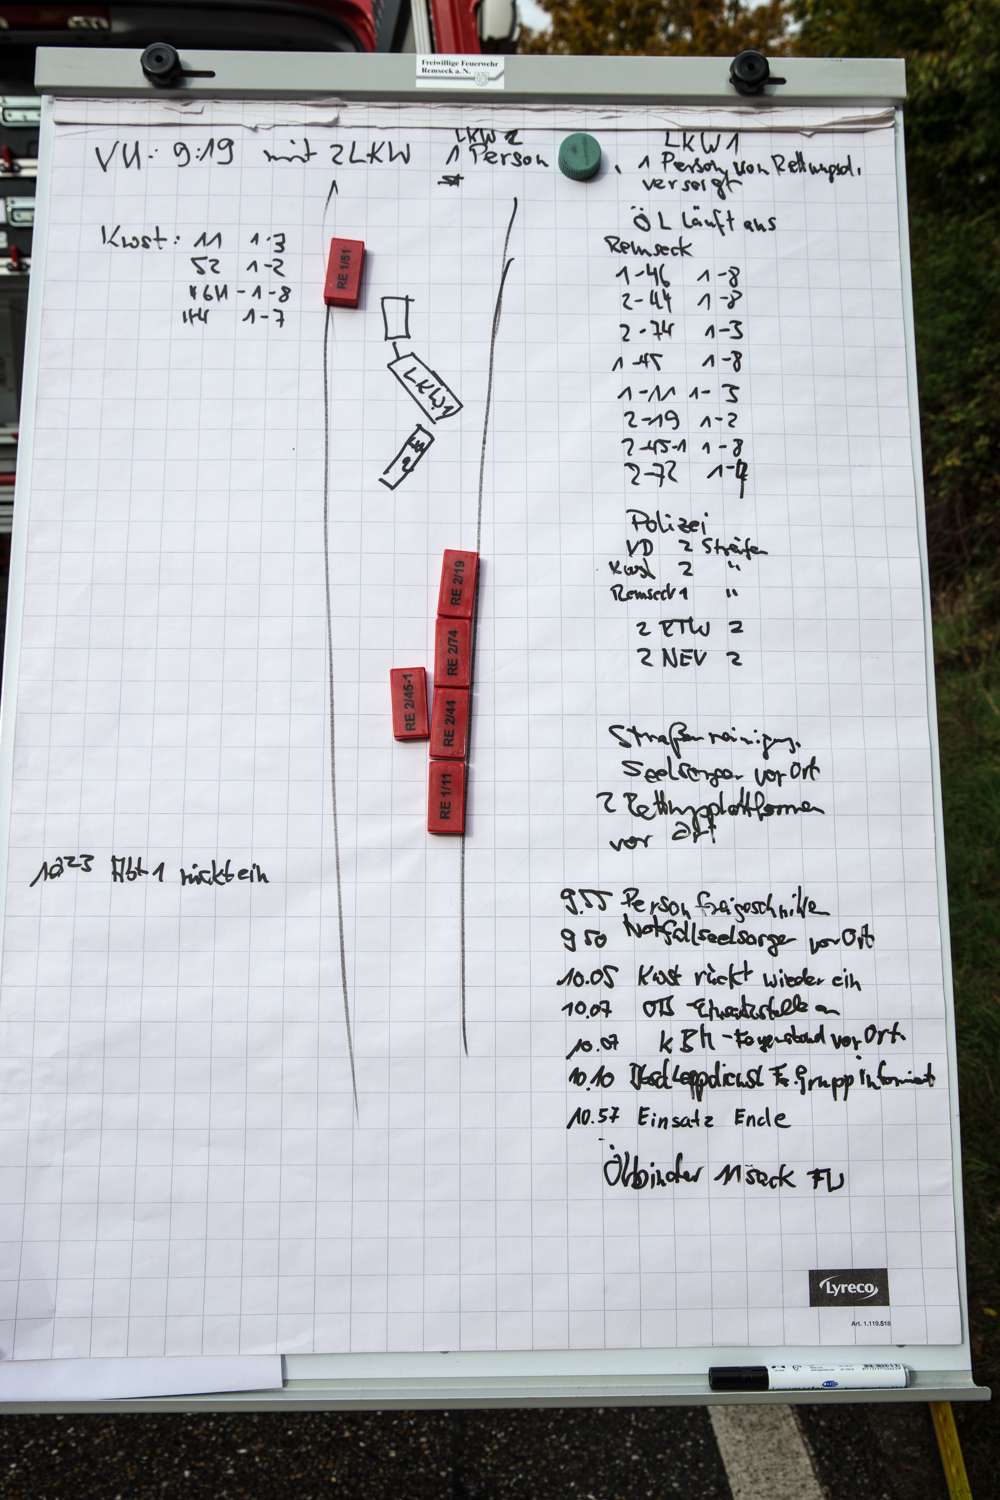 Freiwillige Feuerwehr
Remseck a. N.
VU: 9:19 mit 2 LKW
LKW 2
1 Person
LKW 1
1 Person von Rettungsd.
versorgt
ÖL läuft aus
Kwst: 11 1-3
52 1-2
1-8
44 1-7
RE 1/51
LKW1
2
RE 2/19
RE 2/74
RE 2/45-1
RE 2/44
RE 1/11
Remseck
1-46 1-8
2-44 1-8
2-74 1-3
1-45 1-8
1-11 1-3
2-19 1-2
2-45-1 1-8
2-72 1-4
Polizei
VD 2 Streifen
Kwst 2 "
Remseck 1 "
2 RTW 2
2 NEV 2
Straßenreinigung
Seelsorger vor Ort
2 Rettungsplattformen
vor Ort
10 23 Abt 1 rückt ein
9.55 Person freigeschnitten
9 50 Notfallseelsorger vor Ort
10.05 Kwst rückt wieder ein
10.07 Einsatzstelle an
10.07 KBM - vor Ort.
10.10 Abschleppdienst informiert
10.57 Einsatz Ende
Ölbinder 11 Sack
Lyreco
Art. 1.119.518